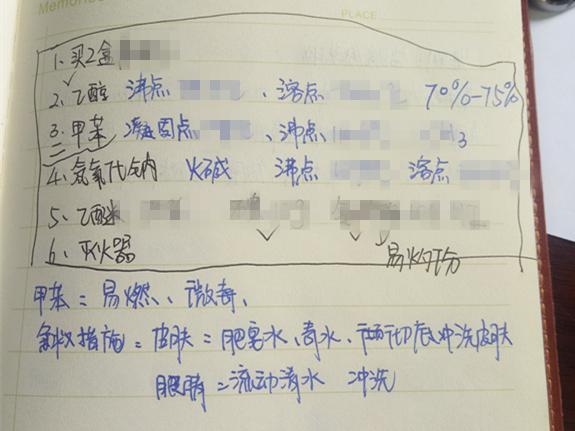 Memories
PLACE
1、买2盒
2、乙醇 沸点 、溶点 70%-75%
3、甲苯 凝固点 、沸点 3
4、氢氧化钠 火碱 沸点 溶点
5、乙醚
6、灭火器 易燃
甲苯：易燃、微毒、
措施：皮肤：肥皂水、清水、彻底冲洗皮肤
眼睛：流动清水 冲洗